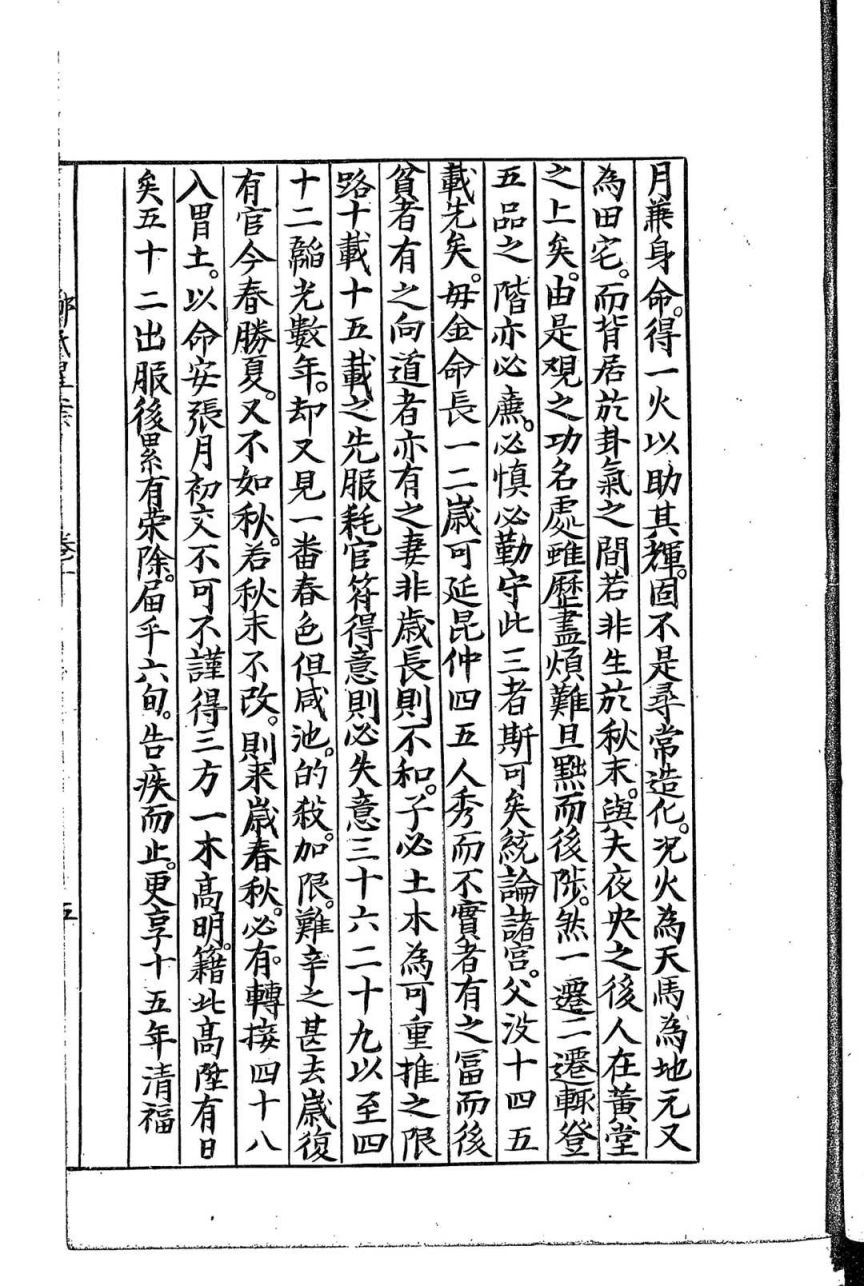 月兼身命。得一火以助其輝。固不是尋常造化。况火為天馬為地元又
為田宅。而背居於卦氣之間若非生於秋末。與夫夜央之後人在黃堂
之上矣。由是覌之功名處雖歷盡煩難旦黜而後陟。然一遷二遷輙登
五品之階亦必廉。必慎必勤守此三者斯可矣統論諸宫。父没十四五
載先矣。毋金命長一二歲可延昆仲四五人秀而不實者有之冨而後
貧者有之向道者亦有之妻非歲長則不和。子必土木為可重推之限
路十載十五載之先服耗官符得意則必失意三十六二十九以至四
十二韶光數年。却又見一畨春色但咸池。的殺加限。難辛之甚去歲復
有官今春勝夏。又不如秋。若秋末不改。則來歲春秋。必有。轉接四十八
入胃土。以命安張月初交不可不謹得三方一木高明。籍此高陞有日
矣五十二出服後累有荣除。届乎六旬。告疾而止。更享十五年清福